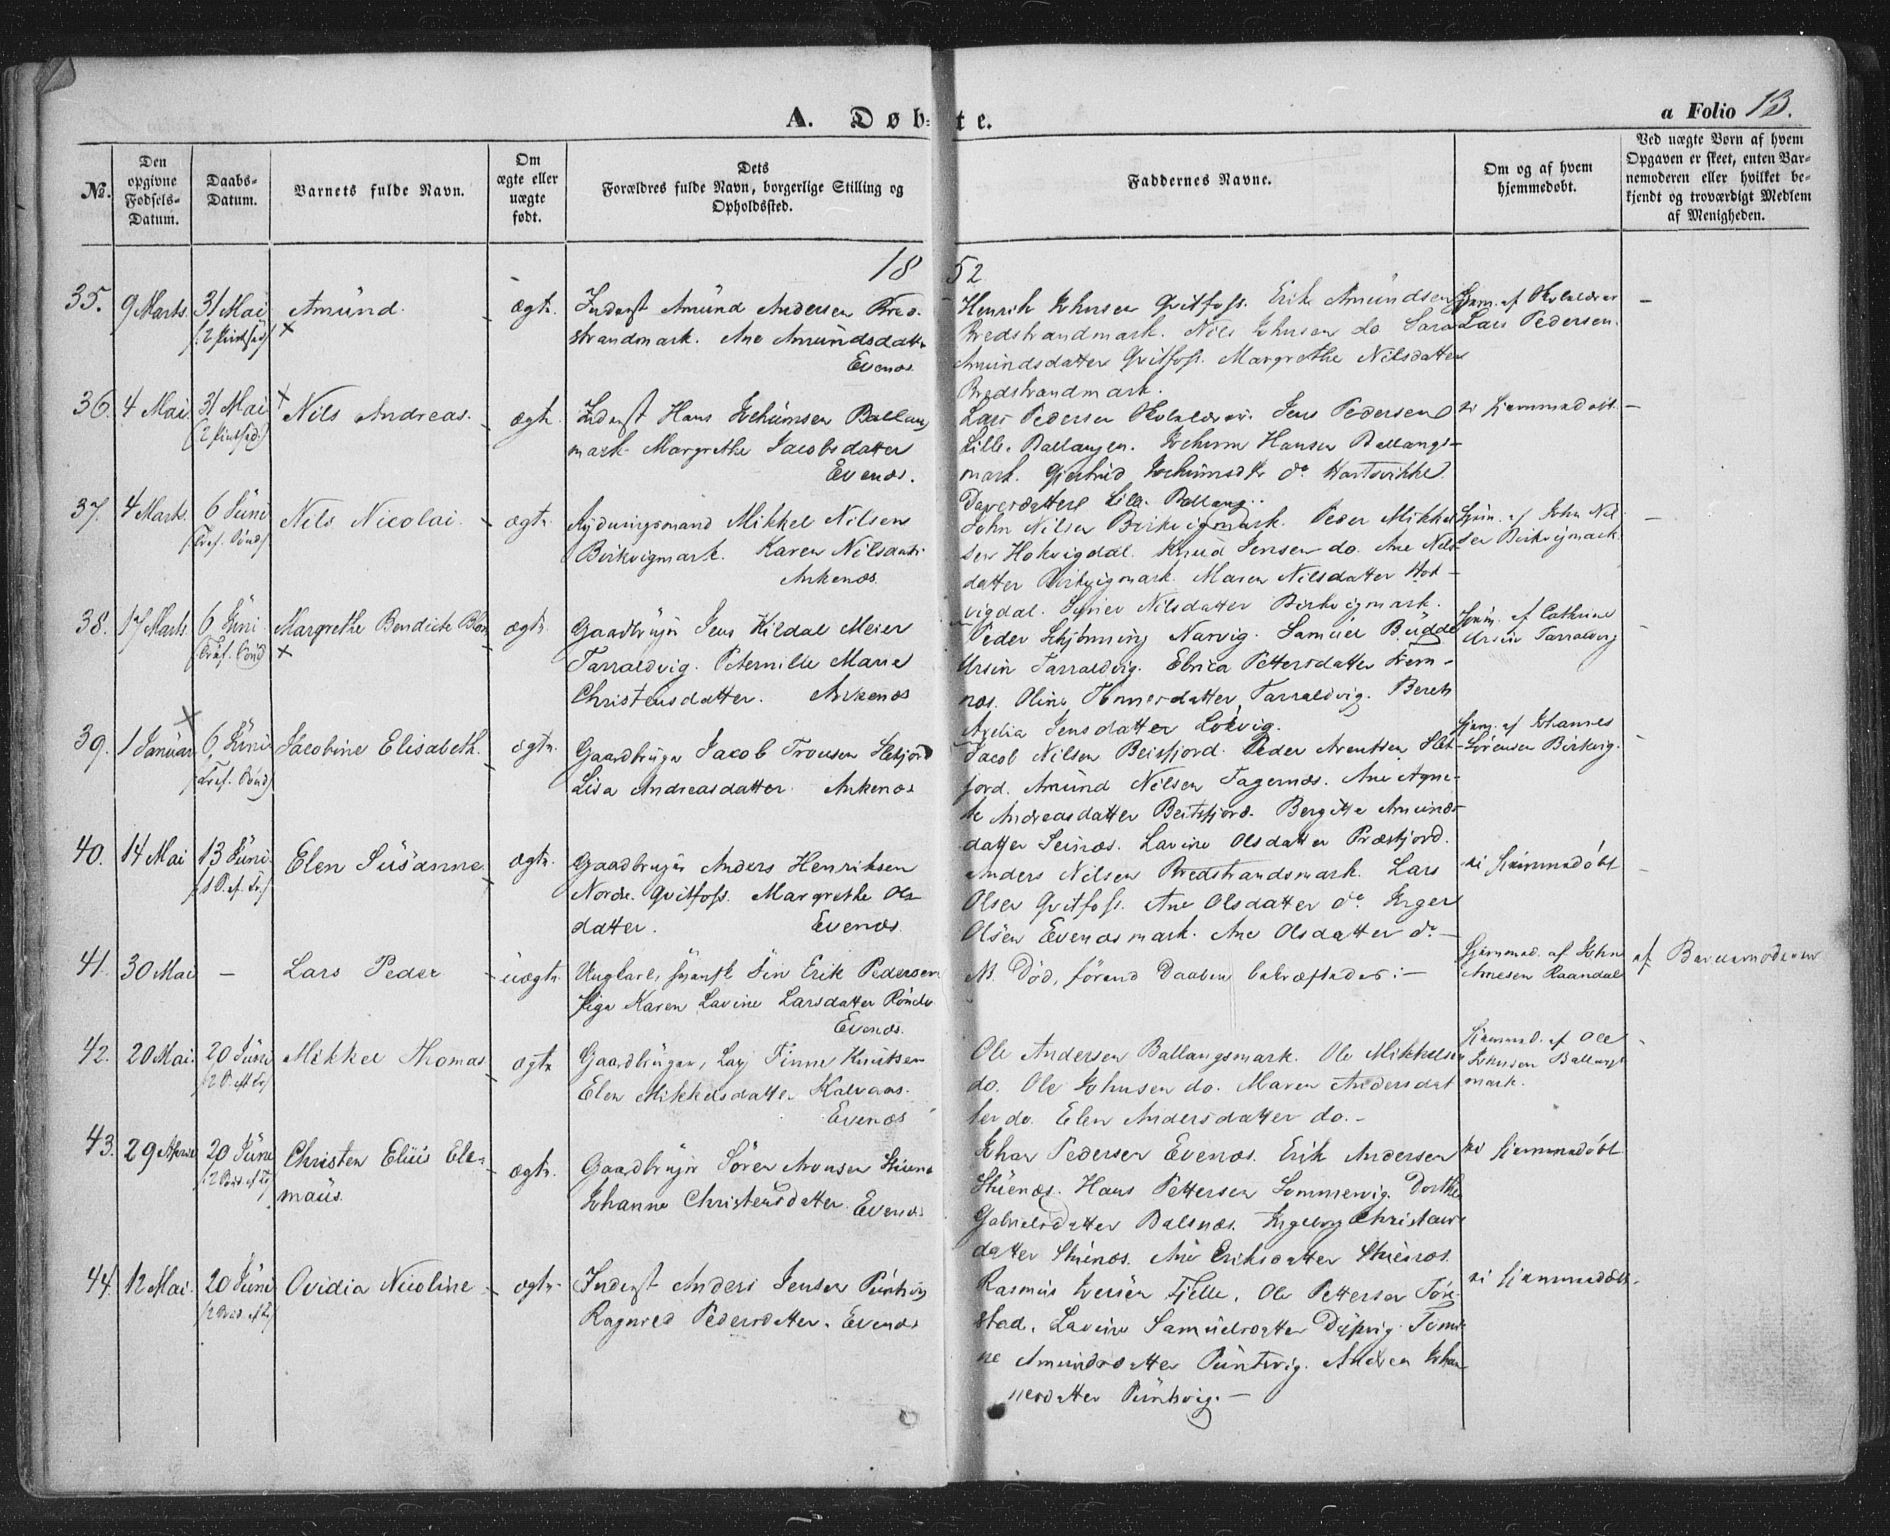 A. Døb=te.
a Folio 13.
№.
Den opgivne Fødsels-Datum.
Daabs-Datum.
Varnets fulde Navn.
Om ægte eller uægte født.
Dets Forældres fulde Navn, borgerlige Stilling og Opholdssted.
Faddernes Navne.
Om og af hvem hjemmedøbt.
Ved uægte Børn af hvem Opgaven er skeet, enten Bar-nemoderen eller hvilket be-kjendt og troværdigt Medlem af Menigheden.
1852
35. 9 Marts. 31 Mai Amünd. ægte. Inderst Amünd Andersen Bred-
strandmark. Ane Amündsdatter
Evenæs
Henrik Johnsen Qvitfoss. Erik Amündsen
Bredstrandmark. Nils Johnsen do Sara
Amündsdatter Qvitfoss. Margrethe Nilsdatter
Bredstrandmark.
Hjem. af
Lars Pedersen. —
36. 4 Mai 31 Mai Nils Andreas. ægte. Inderst Hans Jochümsen Ballang
mark. Margrethe Jacobsdatter
Evenæs.
Lars Pedersen Jens Pedersen
Lille Ballangen. Jochum Hansen Ballangs-
mark. Jochümsdtr do
Lille Ballang.
ei hjemmedøbt. —
37. 4 Marts. 6 Jüni Nils Nicolai. ægte. Rydningsmand Mikkel Nilsen
Birkvigmark. Karen Nilsdatter
Ankenæs.
John Nilsen Birkvigmark. Peder Mikkel
sen Hokvigdal. Knud Jensen do. Ane Nils-
datter Birkvigmark. Maren Nilsdatter Hok-
vigdal. Nilsdatter Birkvigmark.
Hjem. af John Nil
sen Birkvigmark. —
38. 17 Marts. 6 Jüni Margrethe Bendicte ægte. Gaardbrüger Jens Kildal Meier
Tarraldvig. Peternille Marie
Christensdatter. Ankenæs
Peder Schjønning Narvig. Samuel Büdde
Ursin Tarraldvig. Elrica Pettersdatter Fem-
næs. Oline Tarraldvig. Bereth
Axelia Jensdatter
Hjem. af Cathrine
Ursin Tarraldvig —
39. 1 Januar 6 Jüni Jacobine Elisabeth. ægte. Gaardbrüger Jacob Tronsen
Lisa Andreasdatter. Ankenæs
Jacob Nilsen Beisfjord. Peder Arentsen
fjord. Amünd Nilsen Fagernæs. Ane Agne-
te Andreasdatter Beisfjord. Bergitte Amünds-
datter Seinæs. Lavine Olsdatter Præstjord.
hjem. af Johannes
Sørensen Birkvig. —
40. 14 Mai 13 Jüni. Elen Süsanne. ægte. Gaardbrüger Anders Henriksen
Nordre Qvitfoss. Margrethe Ols
datter. Evenæs
Anders Nilsen Bredstrandsmark. Lars
Olsen Qvitfoss. Ane Olsdatter do. Inger
Olsen Evenæsmark. Ane Olsdatter do —
ei hjemmedøbt —
41. 30 Mai — Lars Peder uægte. Ungkarl, Erik Pedersen
Pige Karen Lavine Larsdatter
Evenæs.
N. Død, førend Daaben bekræftedes: —
Hjemmed. af John
Arnesen Raandal af Barnemoderen
42. 20 Mai. 20 Jüni Mikkel Thomas ægte Gaardbrüger, Lap Finne Knutsen
Elen Mikkelsdatter Kalvaas.
Evenæs
Ole Andersen Ballangsmark. Ole Mikkelsen
do. Ole Johnsen do. Maren Andersdat
ter do. Elen Andersdatter do. —
hjemmed. af Ole
Johnsen Ballangs
mark. —
43. 29 20 Jüni Christen Eliüs Ele-
maüs. ægte. Gaardbrüger Søren Aronsen
Johanne Christensdatter. Evenæs
Johan Pedersen Evenæs. Erik Andersen
Stüenæs. Hans Pettersen Sommervig. Dorthe
Gabrielsdatter Balsnæs. Ingeborg Christens-
datter Stüenæs. Ane Eriksdatter Stüenæs.
ei hjemmedøbt.
44. 12 Mai. 20 Jüni Ovidia Nicoline ægte. Inderst Anders Jensen Püntsvig
Ragnild Pedersdatter. Evenæs
Rasmus Iversen Fjelle. Ole Pettersen Tøre-
stad. Lavine Samüelsdatter Dypvig. Tomi-
ne Amündsdatter Püntsvig. Andrea Johan-
nesdatter Püntsvig. —
ei hjemmedøbt.